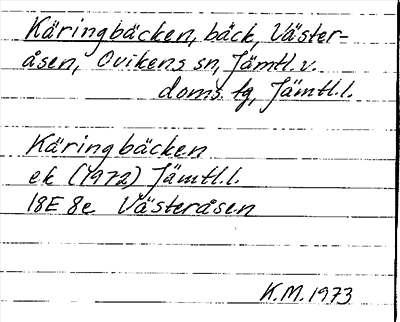 Käringbäcken, bäck, Väster-
åsen, Ovikens sn, Jämtl. v.
doms. tg, Jämtl. l.
Käringbäcken
ek (1972) Jämtl. l.
18E 8e Västeråsen
K.M. 1973